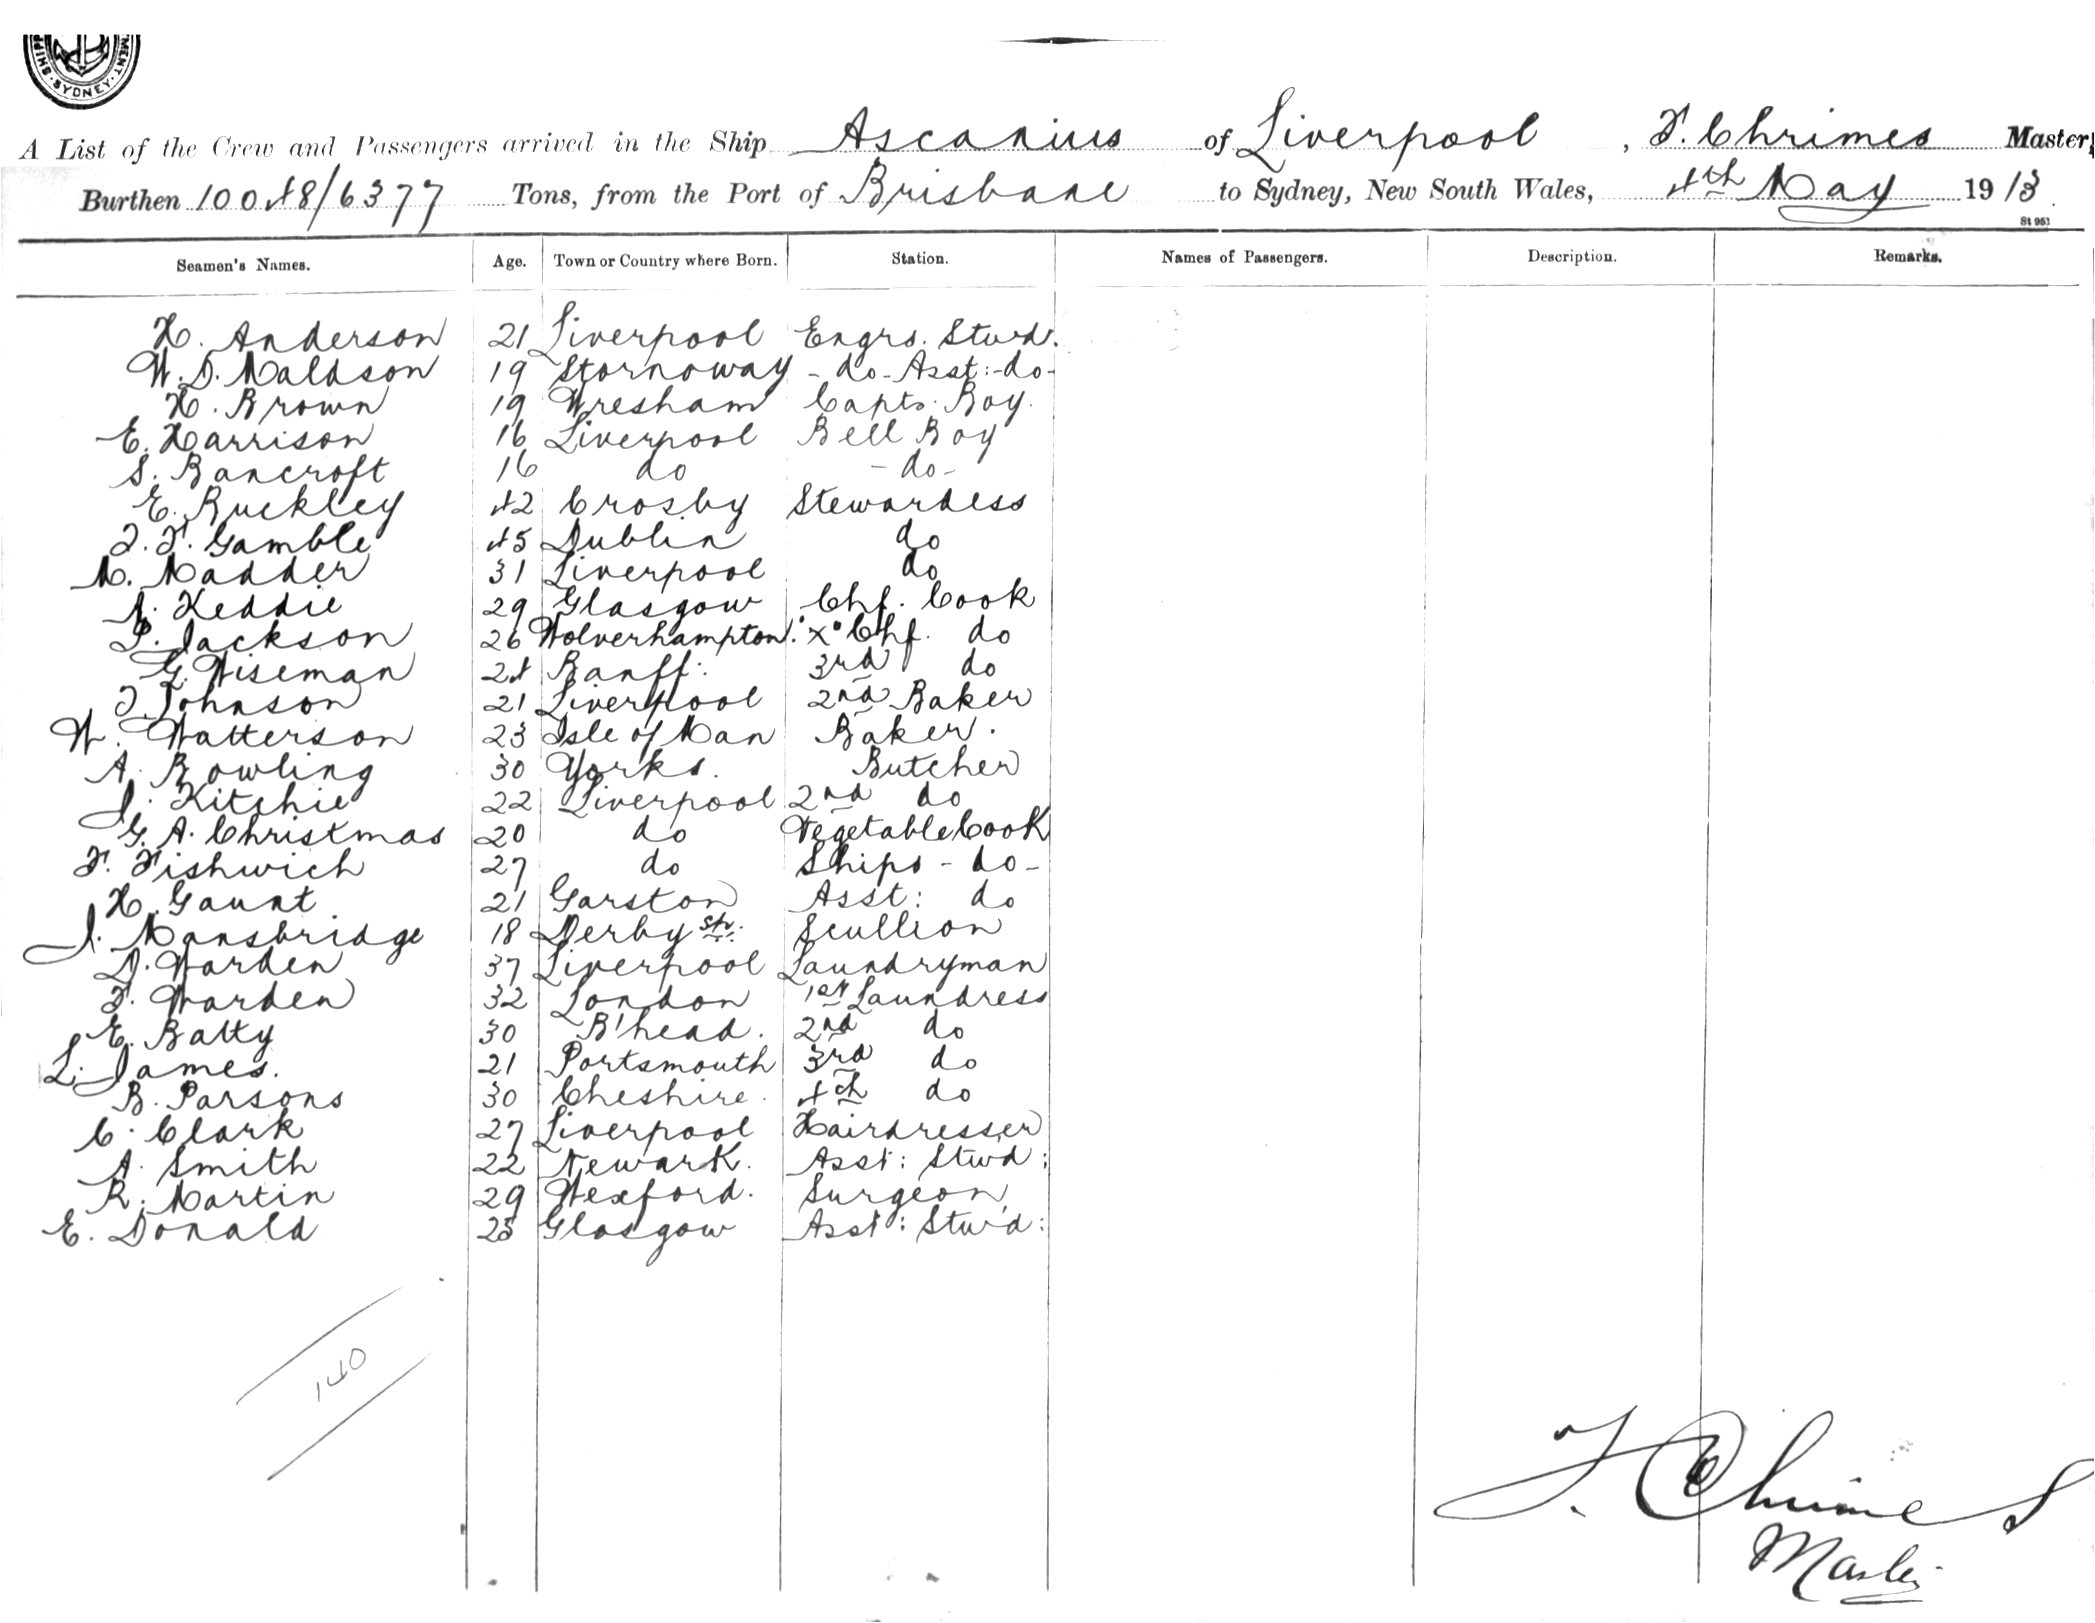 SHIP SYDNEY MENT
A List of the Crew and Passengers arrived in the Ship Ascanius of Liverpool, F. Chrimes Master,
Burthen 10048/6377 Tons, from the Port of Brisbane to Sydney, New South Wales, 4th May 1913
St 951
Seamen's Names. Age. Town or Country where Born. Station. Names of Passengers. Description. Remarks.
H. Anderson 21 Liverpool Engrs. Stwd.
W. D. Maldson 19 Stornoway - do - Asst: - do -
H. Brown 19 Wresham Capts. Boy.
E. Harrison 16 Liverpool Bell Boy
S. Bancroft 16 do - do -
E. Buckley 42 Crosby Stewardess
J. F. Gamble 45 Dublin do
M. Madder 31 Liverpool do
A. Keddie 29 Glasgow Chf. Cook
P. Jackson 26 Wolverhampton. x Chf. do
G. Wiseman 24 Banff: 3rd do
J. Johnson 21 Liverpool 2nd Baker
W. Watterson 23 Isle of Man Baker.
A. Bowling 30 Yorks. Butcher
J. Kitchie 22 Liverpool 2nd do
G. A. Christmas 20 do Vegetable Cook
F. Fishwich 27 do Ships - do -
H. Gaunt 21 Garston Asst: do
J. Mansbridge 18 Derby Str. Scullion
D. Warden 37 Liverpool Laundryman
F. Warden 32 London 1st Laundress
E. Batty 30 B'head. 2nd do
L. James. 21 Portsmouth 3rd do
B. Parsons 30 Cheshire. 4th do
C. Clark 27 Liverpool Hairdresser
A. Smith 22 Newark. Asst: Stwd:
R. Martin 29 Wexford. Surgeon
E. Donald 23 Glasgow Asst: Stw'd:
140
F. Chrimes
Master